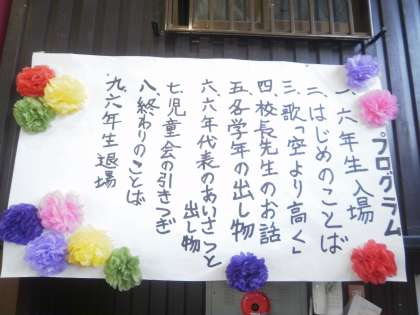 プログラム
一、六年生入場
二、はじめのことば
三、歌「空より高く」
四、校長先生のお話
五、各学年の出し物
六、六年代表のあいさつと
出し物
七、児童会の引きつぎ
八、終わりのことば
九、六年生退場